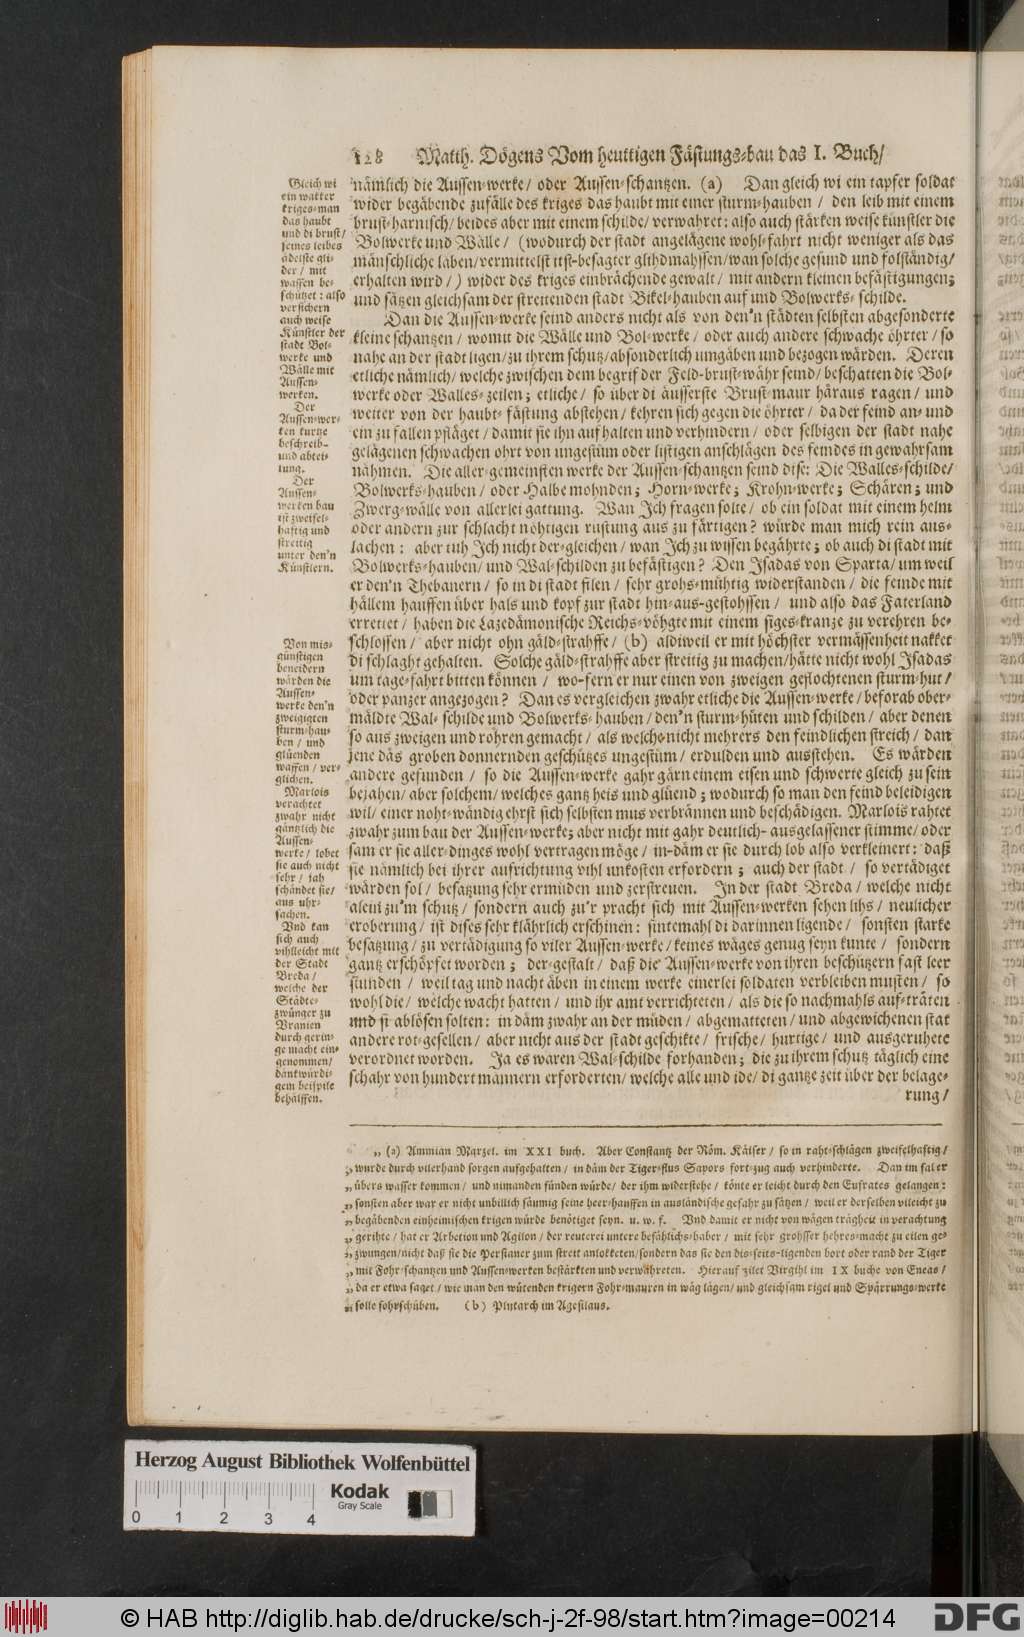 128 Matth. Dögens Vom heuttigen Fästungs-bau das I. Buch/
Gleich wi
ein wakker
kriges-man
das haubt
und di brust/
seines leibes
ädelste gli-
der / mit
waffen be-
schützet: also
versichern
auch weise
Künstler der
stadt Bol-
werke und
Wälle mit
Aussen-
werken.
Der
Aussen-wer-
ken kurtze
beschreib-
und abtei-
lung.
Der
Aussen-
werken bau
ist zweifel-
haftig und
streitig
unter den'n
Künstlern.
Von mis-
günstigen
beneidern
wärden die
Aussen-
werke den'n
zweigigten
sturm-hau-
ben / und
glüenden
waffen / ver-
glichen.
Marlois
verachtet
zwahr nicht
gäntzlich die
Aussen-
werke / lobet
sie auch nicht
sehr / jah
schändet sie/
aus uhr-
sachen.
Vnd kan
sich auch
vihlleicht mit
der Stadt
Breda /
welche der
Städte-
zwünger zu
Vranien
durch gerin-
ge macht ein-
genommen/
dankwürdi-
gem beispile
behälffen.
nämlich die Aussen-werke / oder Aussen-schantzen. (a) Dan gleich wi ein tapfer soldat
wider begäbende zufälle des kriges das haubt mit einer sturm-hauben / den leib mit einem
brust-harnisch / beides aber mit einem schilde / verwahret: also auch stärken weise künstler die
Bolwerke und Wälle / (wodurch der stadt angelägene wohl-fahrt nicht weniger als das
mänschliche läben / vermittelst itst-besagter glihdmahssen / wan solche gesund und folständig/
erhalten wird / ) wider des kriges einbrächende gewalt / mit andern kleinen befästigungen;
und sätzen gleichsam der streittenden stadt Bikel-hauben auf und Bolwerks-schilde.
Dan die Aussen-werke seind anders nicht als von den'n städten selbsten abgesonderte
kleine schantzen / womit die Wälle und Bol-werke / oder auch andere schwache öhrter / so
nahe an der stadt ligen / zu ihrem schutz / absonderlich umgäben und bezogen wärden. Deren
etliche nämlich / welche zwischen dem begrif der Feld-brust-währ seind / beschatten die Bol-
werke oder Walles-zeilen; etliche / so über di äusserste Brust-maur häraus ragen / und
weiter von der haubt-fästung abstehen / kehren sich gegen die öhrter / da der feind an- und
ein zu fallen pfläget / damit sie ihn auf halten und verhindern / oder selbigen der stadt nahe
gelägenen schwachen ohrt von ungestüm oder listigen anschlägen des feindes in gewahrsam
nähmen. Die aller-gemeinsten werke der Aussen-schantzen seind dise: Die Walles-schilde/
Bolwerks-hauben / oder Halbe mohnden; Horn-werke; Krohn-werke; Schären; und
Zwerg-wälle von allerlei gattung. Wan Jch fragen solte / ob ein soldat mit einem helm
oder andern zur schlacht nöhtigen rüstung aus zu färtigen? würde man mich rein aus-
lachen: aber tuh Jch nicht der-gleichen / wan Jch zu wissen begährte; ob auch di stadt mit
Bolwerks-hauben / und Wal-schilden zu befästigen? Den Jsadas von Sparta / um weil
er den'n Thebanern / so in di stadt filen / sehr grohs-mühtig widerstanden / die feinde mit
hällem hauffen über hals und kopf zur stadt hin-aus-gestohssen / und also das Faterland
errettet / haben die Lazedämonische Reichs-vöhgte mit einem siges-kranze zu verehren be-
schlossen / aber nicht ohn gäld-strahffe / (b) aldiweil er mit höchster vermässenheit nakket
di schlaght gehalten. Solche gäld-strahffe aber streitig zu machen / hätte nicht wohl Jsadas
um tage-fahrt bitten können / wo-fern er nur einen von zweigen geflochtenen sturm-hut /
oder panzer angezogen? Dan es vergleichen zwahr etliche die Aussen-werke / beforab ober-
mäldte Wal-schilde und Bolwerks-hauben / den'n sturm-hüten und schilden / aber denen
so aus zweigen und rohren gemacht / als welche nicht mehrers den feindlichen streich / dan
jene däs groben donnernden geschützes ungestüm / erdulden und ausstehen. Es wärden
andere gefunden / so die Aussen-werke gahr gärn einem eisen und schwerte gleich zu sein
bejahen / aber solchem / welches gantz heis und glüend; wodurch so man den feind beleidigen
wil / einer noht-wändig ehrst sich selbsten mus verbrännen und beschädigen. Marlois rahtet
zwahr zum bau der Aussen-werke; aber nicht mit gahr deutlich-ausgelassener stimme / oder
sam er sie aller-dinges wohl vertragen möge / in-däm er sie durch lob also verkleinert: daß
sie nämlich bei ihrer aufrichtung vihl unkosten erfordern; auch der stadt / so vertädiget
wärden sol / besatzung sehr ermüden und zerstreuen. Jn der stadt Breda / welche nicht
alein zu'm schutz / sondern auch zu'r pracht sich mit Aussen-werken sehen lihs / neulicher
eroberung / ist dises sehr klährlich erschinen: sintemahl di darinnen ligende / sonsten starke
besatzung / zu vertädigung so viler Aussen-werke / keines wäges genug seyn kunte / sondern
gantz erschöpfet worden; der-gestalt / daß die Aussen-werke von ihren beschützern fast leer
stunden / weil tag und nacht äben in einem werke einerlei soldaten verbleiben musten / so
wohl die / welche wacht hatten / und ihr amt verrichteten / als die so nachmahls auf-träten
und si ablösen solten: in däm zwahr an der müden / abgematteten / und abgewichenen stat
andere rot-gesellen / aber nicht aus der stadt geschikte / frische / hurtige / und ausgeruhete
verordnet worden. Ja es waren Wal-schilde forhanden; die zu ihrem schutz täglich eine
schahr von hundert mannern erforderten / welche alle und ide / di gantze zeit über der belage-
rung /
„ (a) Ammian Marzel. im XXI buch. Aber Constantz der Röm. Käiser / so in raht-schlägen zweifelhaftig /
„ wurde durch vilerhand sorgen aufgehalten / in däm der Tiger-flus Sapors fort-zug auch verhinderte. Dan im fal er
„ übers wasser kommen / und nimanden fünden würde / der ihm widerstehe / könte er leicht durch den Eufrates gelangen:
„ sonsten aber war er nicht unbillich säumig seine heer-hauffen in ausländische gefahr zu sätzen / weil er derselben vileicht zu
„ begäbenden einheimischen krigen würde benötiget seyn. u. w. f. Vnd damit er nicht von wägen trägheit in verachtung
„ gerihte / hat er Arbetion und Agilon / der reuterei untere befählichs-haber / mit sehr grohsser hehres-macht zu eilen ge-
„ zwungen / nicht daß sie die Persianer zum streit anlokketen / sondern das sie den dis-seits-ligenden bort oder rand der Tiger
„ mit Fohr-schantzen und Aussen-werken bestärkten und verwahreten. Hierauf zilet Virgihl im IX buche von Eneas /
„ da er etwa saget / wie man den wütenden krigern Fohr-mauren in wäg lägen / und gleichsam rigel und Spärrungs-werke
„ solle fohrschüben. (b) Plutarch im Agesilaus.
Herzog August Bibliothek Wolfenbüttel
Kodak
Gray Scale
0 1 2 3 4
© HAB http://diglib.hab.de/drucke/sch-j-2f-98/start.htm?image=00214
DFG